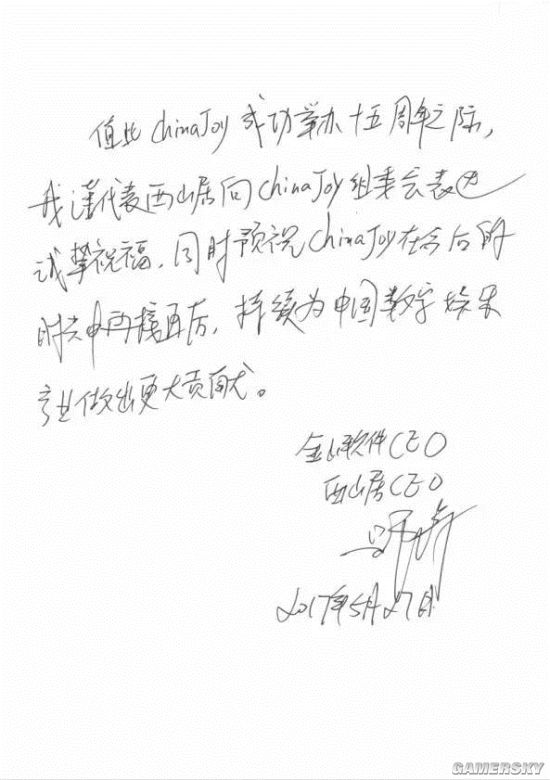 值此ChinaJoy成功举办十五周年之际，
我谨代表西山居向ChinaJoy组委会表达
诚挚祝福，同时预祝ChinaJoy在今后的
时光中再接再厉，持续为中国数字娱乐
产业做出更大贡献。
金山软件CEO
西山居CEO
2017年5月27日
GAMERSKY